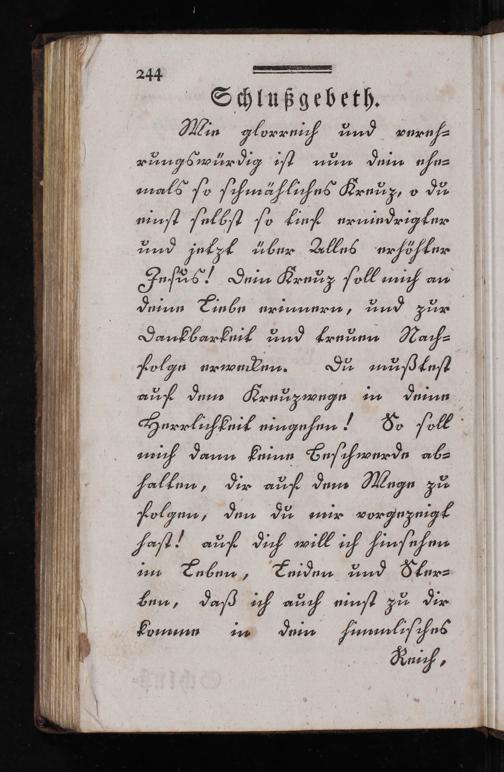 244
Schlußgebeth.
Wie glorreich und vereh-
rungswürdig ist nun dein ehe-
mals so schmähliches Kreuz, o du
einst selbst so tief erniedrigter
und jetzt über Alles erhöhter
Jesus! Dein Kreuz soll mich an
deine Liebe erinnern, und zur
Dankbarkeit und treuen Nach-
folge erwecken. Du mußtest
auf dem Kreuzwege in deine
Herrlichkeit eingehen! So soll
mich dann keine Beschwerde ab-
halten, dir auf dem Wege zu
folgen, den du mir vorgezeigt
hast! auf dich will ich hinsehen
im Leben, Leiden und Ster-
ben, daß ich auch einst zu dir
komme in dein himmlisches
Reich,